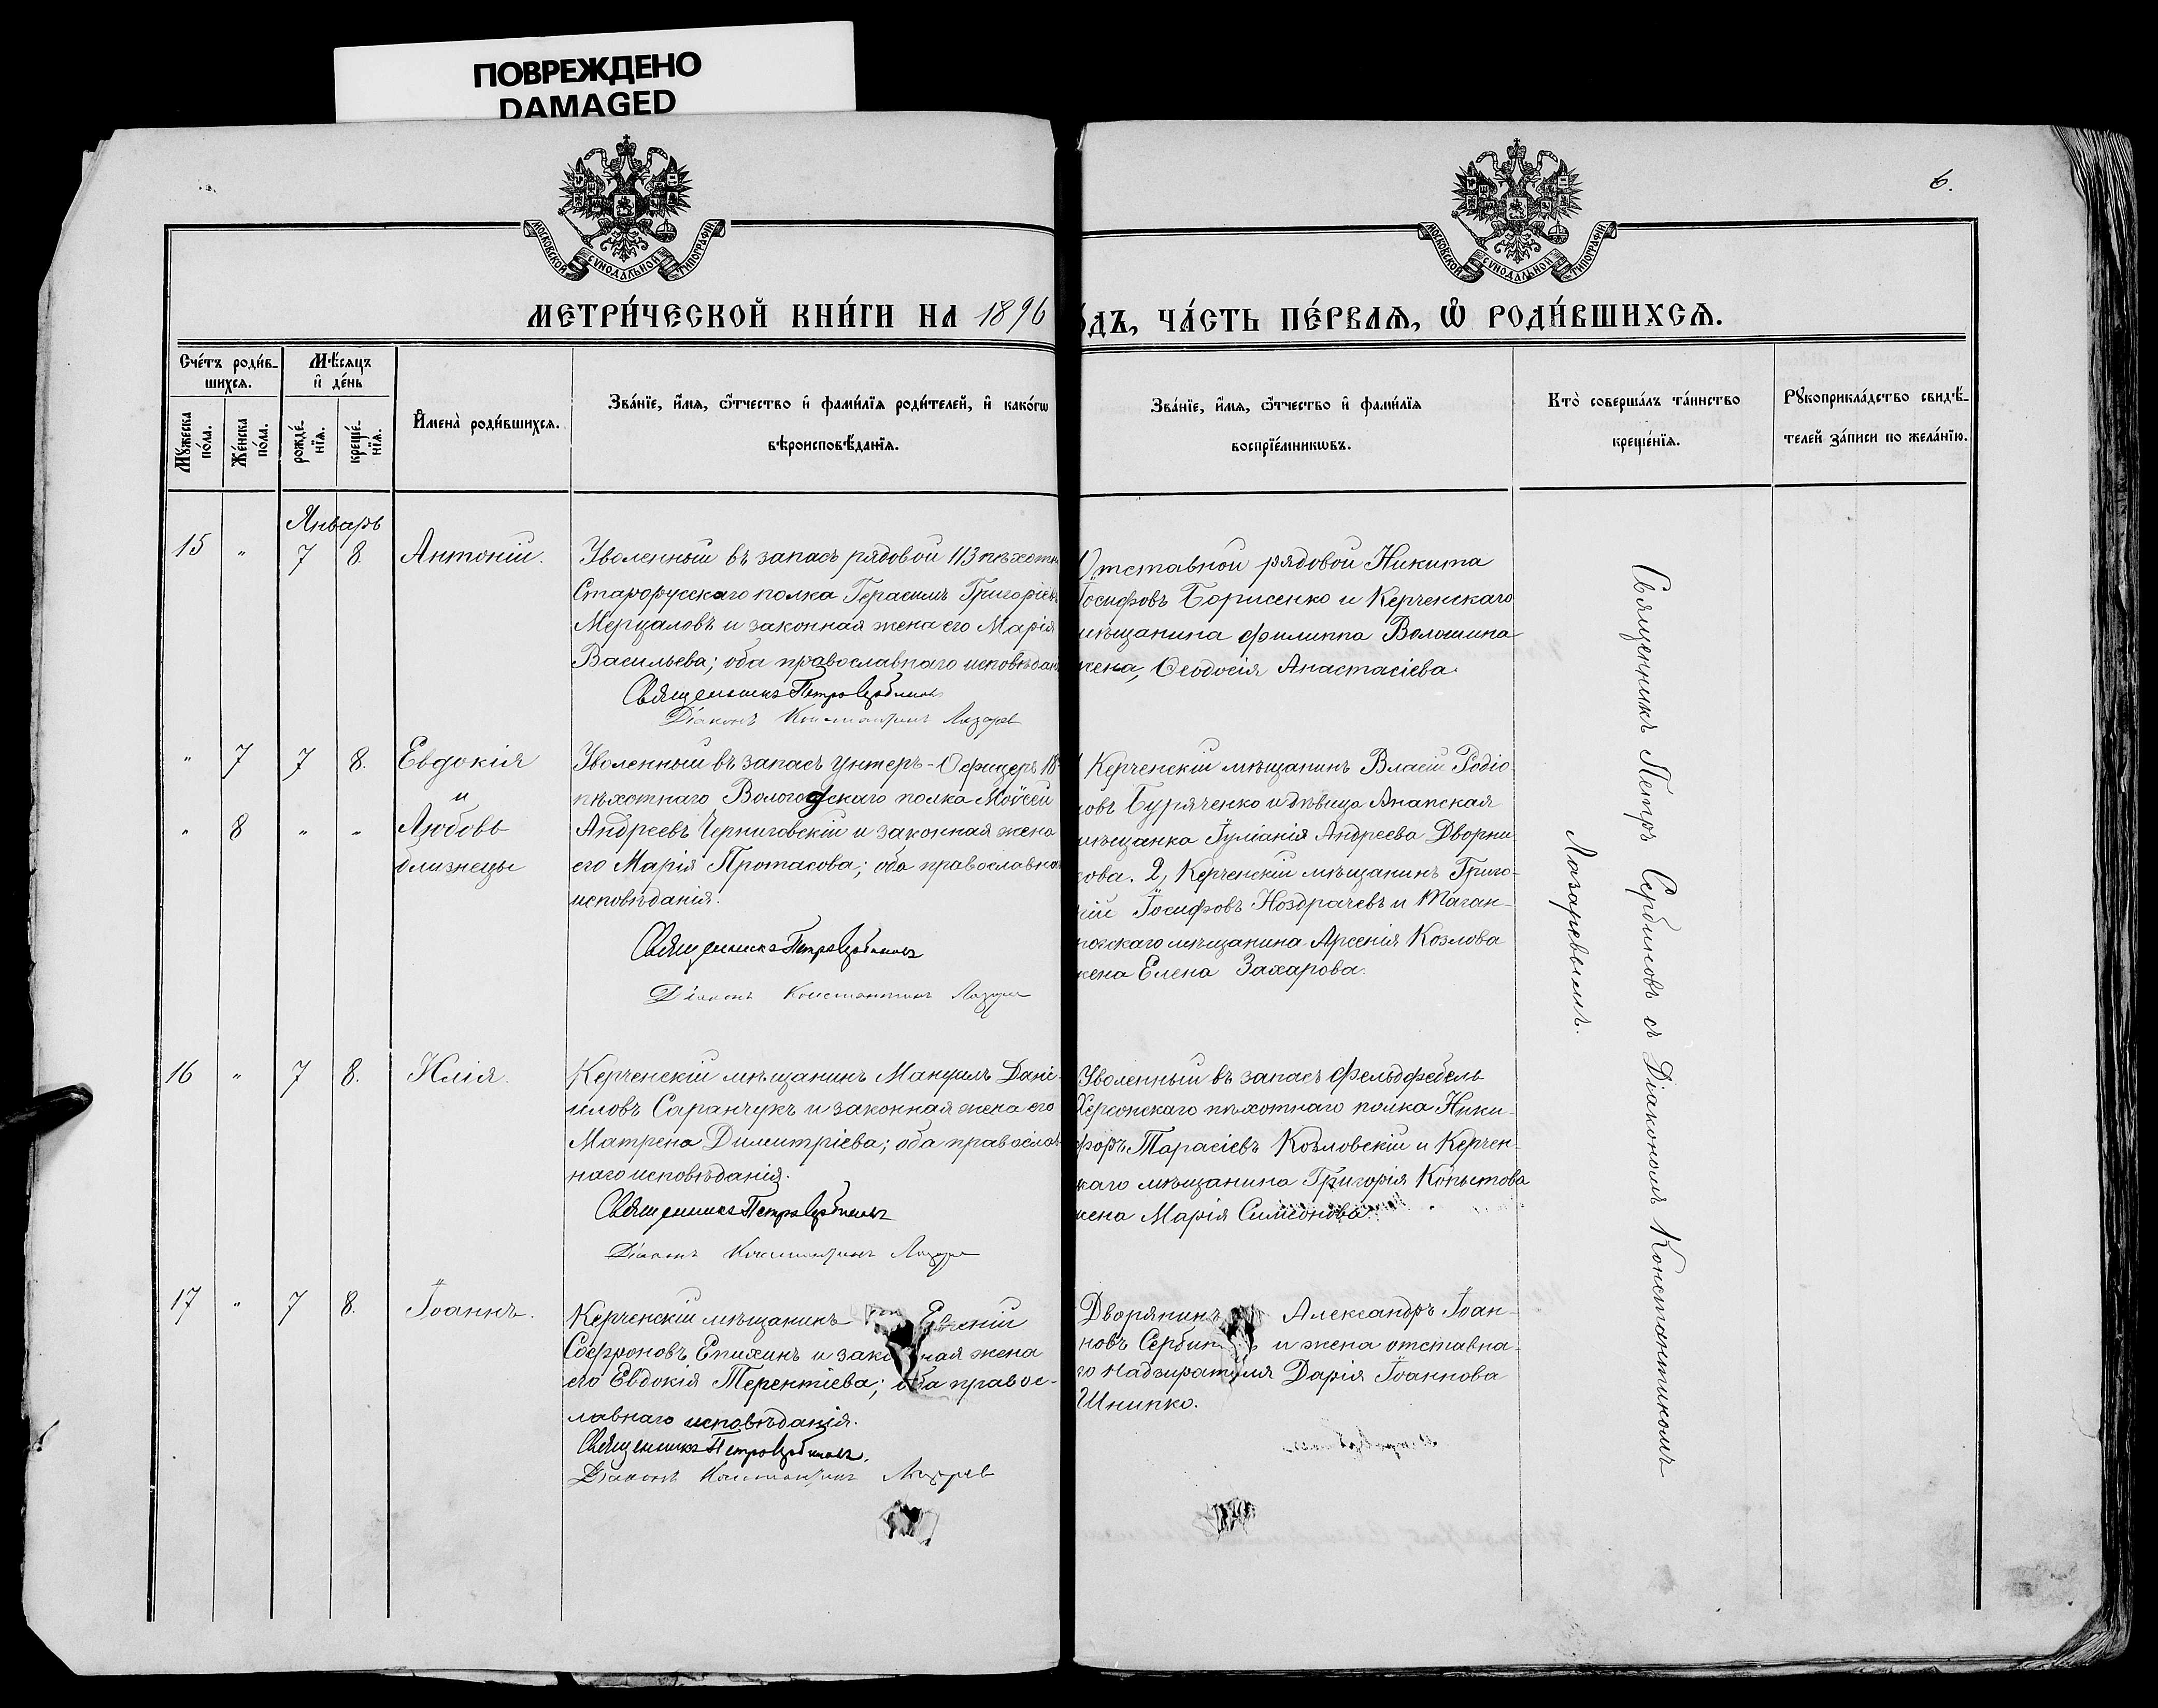 ПОВРЕЖДЕНО
DAMAGED
МОСКОВСКОЙ СѴНОДАЛЬНОЙ ТИПОГРАФІИ
МОСКОВСКОЙ СѴНОДАЛЬНОЙ ТИПОГРАФІИ
6.
МЕТРИ́ЧЕСКОЙ КНИ́ГИ НА 1896
ОДЪ, ЧА́СТЬ ПЕ́РВАѦ, Ѡ РОДИ́ВШИХСѦ.
Сче́тъ роди́в-
шихсѧ.
Мѣ́сѧцъ
и҆ де́нь
Мꙋ́жеска
по́ла.
Же́нска
по́ла.
рожде́-
нїѧ.
креще́-
нїѧ.
И҆мена̀ роди́вшихсѧ.
Зва́нїе, и҆́мѧ, ѻ҆́тчество и҆ фами́лїѧ роди́телей, и҆ како́гѡ
вѣроисповѣ́данїѧ.
Зва́нїе, и҆́мѧ, ѻ҆́тчество и҆ фами́лїѧ
воспрїе́мникѡвъ.
Кто̀ соверша́лъ та́инство
креще́нїѧ.
Рꙋкоприкла́дство свидѣ́-
телей за́писи по жела́нїю.
Январь
15 " 7 8. Антоній.
Уволенный въ запасъ рядовой 113 пѣхотн
Старорусскаго полка Герасимъ Григоріевъ
Мерцаловъ и законная жена его Марія
Васильева; оба православнаго исповѣдан
Священникъ Петръ Сербиновъ
Діаконъ Константинъ Лазаревъ
Отставной рядовой Никита
Іосифовъ Борисенко и Керченскаго
мѣщанина Филиппа Волошина
жена, Ѳеодосія Анастасіева.
" 7 7 8. Евдокія
и
" 8 " " Любовь
близнецы
Уволенный въ запасъ Унтеръ-Офицеръ 18
пѣхотнаго Вологодскаго полка Моѵсей
Андреевъ Черниговскій и законная жена
его Марія Протасова; оба православна
исповѣданія.
Священникъ Петръ Сербиновъ
Діаконъ Константинъ Лазаревъ
Керченскій мѣщанинъ Власій Родіо-
новъ Буряченко и дѣвица Анапская
мѣщанка Іуліанія Андреева Дворни-
кова. 2, Керченскій мѣщанинъ Григо-
рій Іосифовъ Ноздрачевъ и Таган-
рогскаго мѣщанина Арсенія Козлова
жена Елена Захарова.
16 " 7 8. Илія.
Керченскій мѣщанинъ Мануилъ Дані-
иловъ Саранчукъ и законная жена его
Матрена Димитріева; оба православ-
наго исповѣданія.
Священникъ Петръ Сербиновъ
Діаконъ Константинъ Лазаревъ
Уволенный въ запасъ фельдфебель
Херсонскаго пѣхотнаго полка Ники-
форъ Тарасіевъ Козловскій и Керчен-
скаго мѣщанина Григорія Копытова
жена Марія Симеонова.
17 " 7 8. Іоаннъ.
Керченскій мѣщанинъ Евгеній
Софроновъ Епихинъ и законная жена
его Евдокія Терентіева; оба правос-
лавнаго исповѣданія.
Священникъ Петръ Сербиновъ.
Діаконъ Константинъ Лазаревъ
Дворянинъ Александръ Іоан-
новъ Сербиновъ и жена отставна-
го надзирателя Дарія Іоаннова
Шнипко.
Священникъ Петръ Сербиновъ съ Діакономъ Константиномъ
Лазаревымъ.